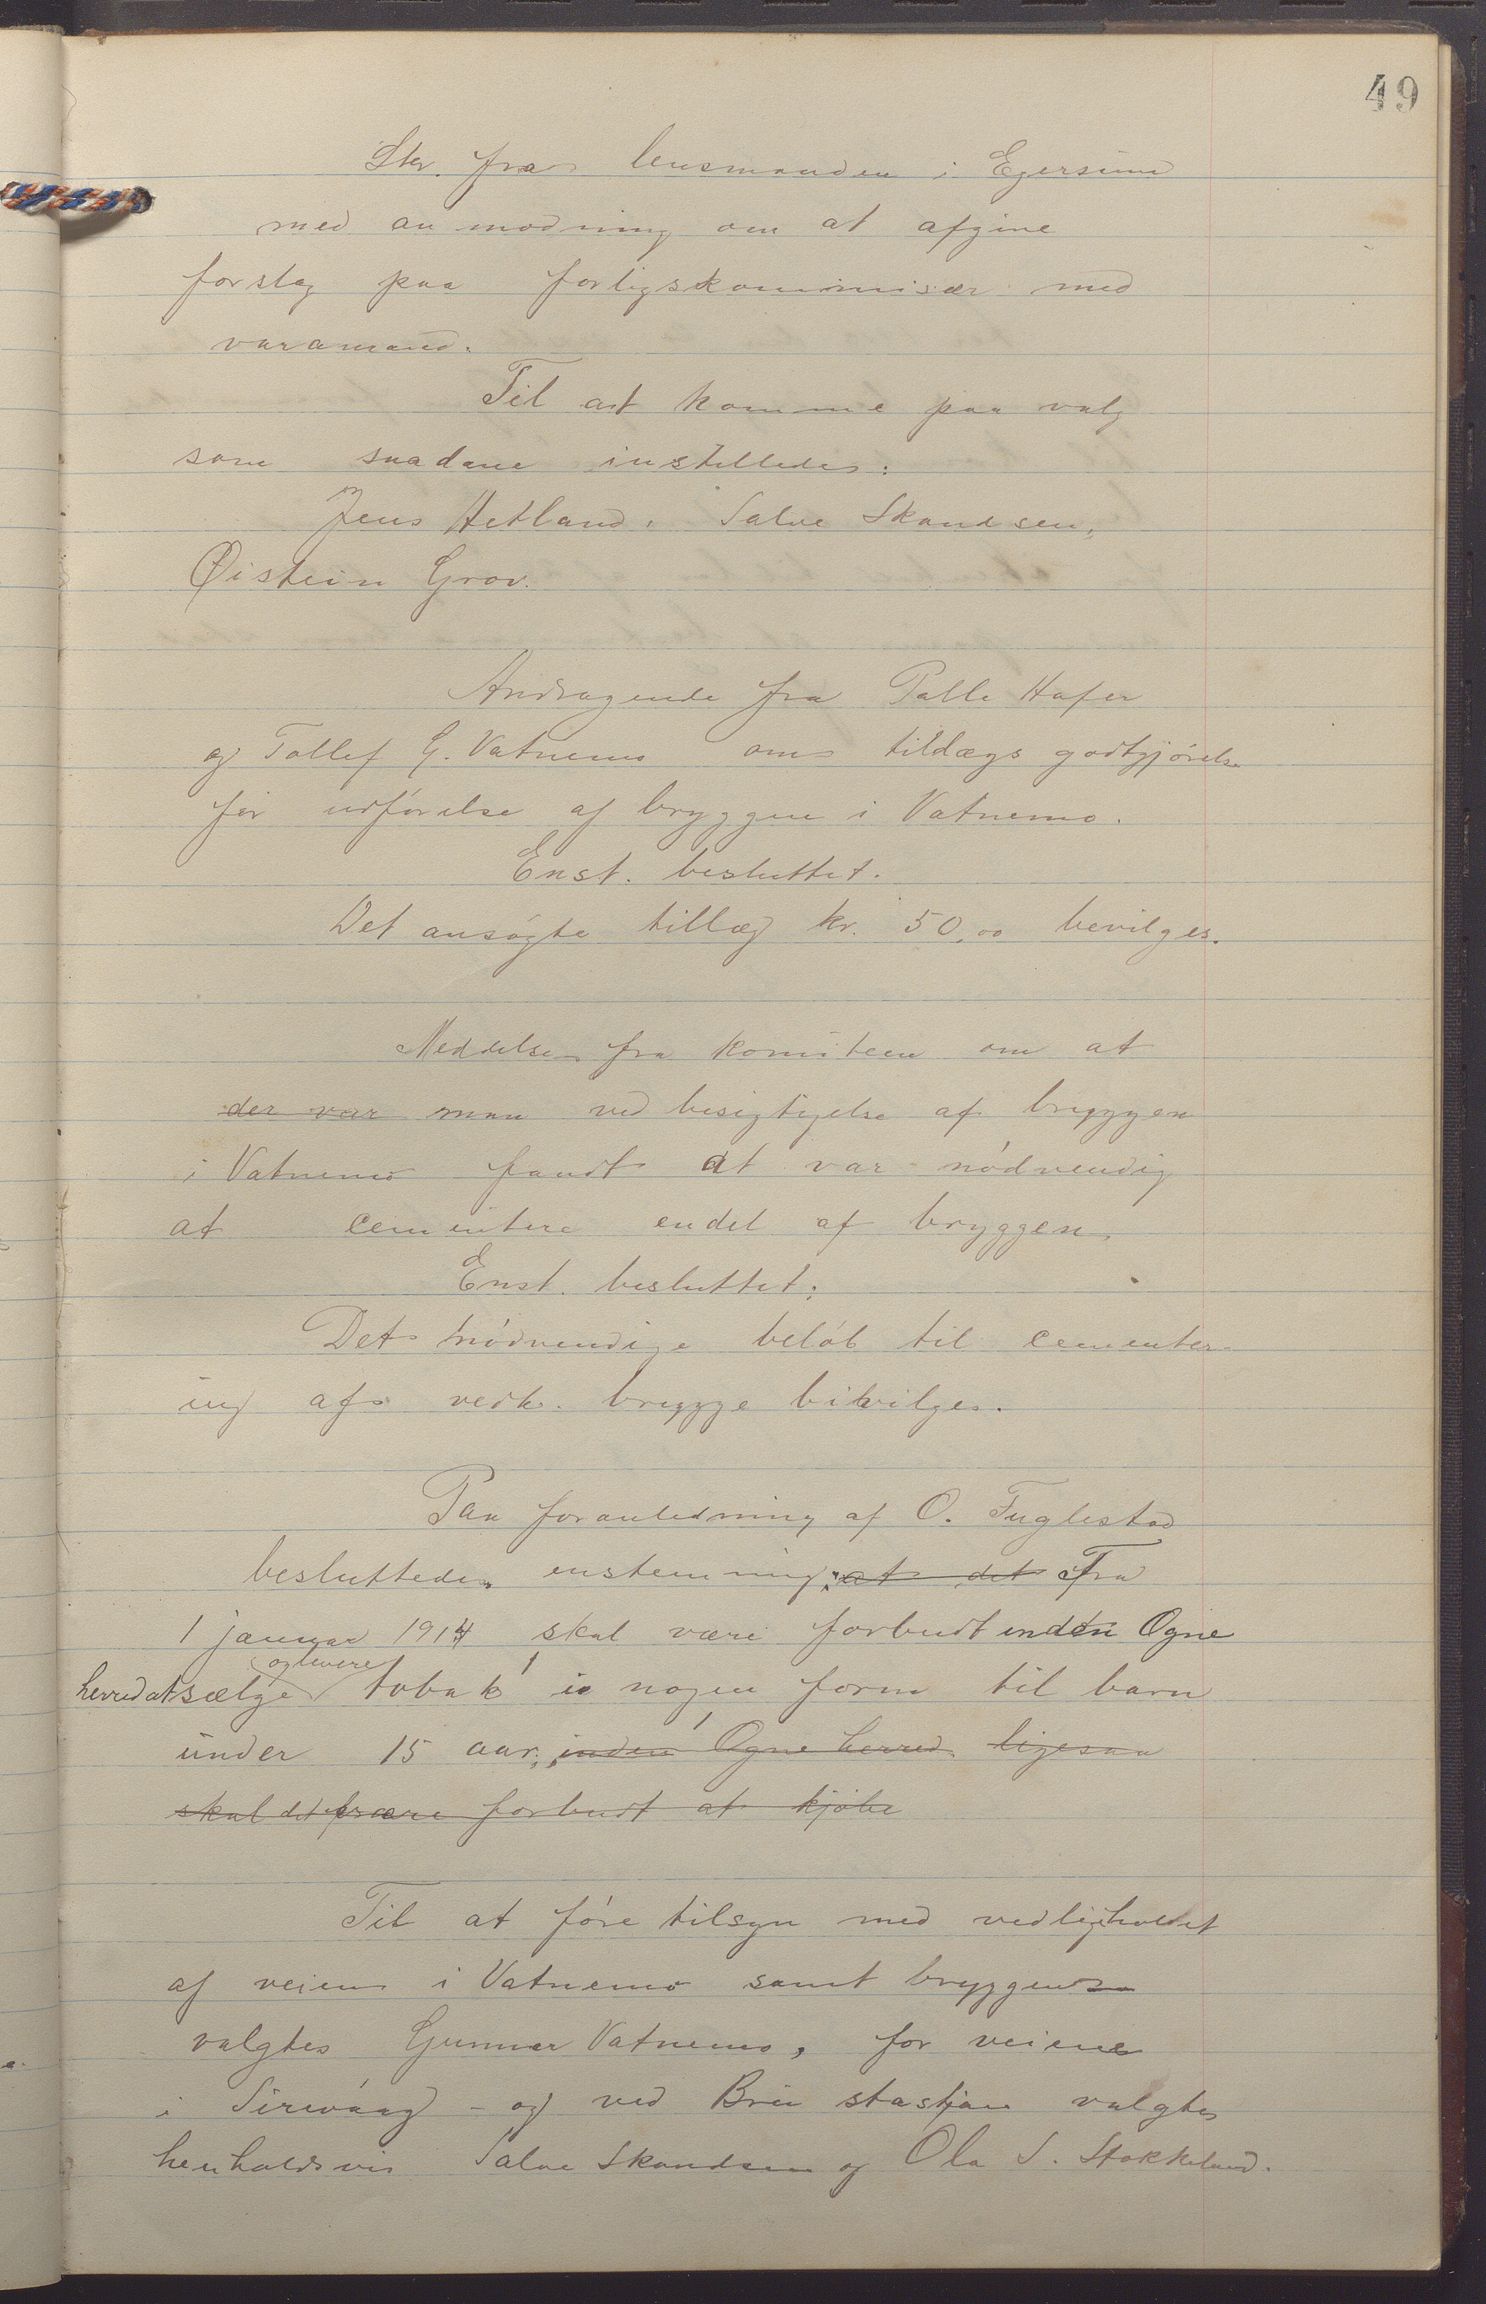 49
Skr. fra lensmanden i Egersund
med anmodning om at afgive
forslag paa forligskommisær med
varamand.
Til at komme paa valg
som saadane instilledes:
Jens Hetland, Salve Skandsen,
Øistein Grov.
Andragende fra Palle Hafer
og Tollef G. Vatnemo om tildægs godtgjørelse
for udførelse af bryggen i Vatnemo.
Enst. besluttet.
Det ansøgte tillæg kr. 50,00 bevilges.
Meddelse fra komiteen om at
der var man ved besigtigelse af bryggen
i Vatnemo fandt at var nødvendig
at cementere endel af bryggen
Enst. besluttet:
Det nødvendige beløb til cementer-
ing af vedk. brygge bevilges.
Paa foranledning af O. Fuglestad
besluttedes enstemmig: at det Fra
1 januar 1914 skal være forbudt inden Ogne
og levere
herred at sælge tobak i nogen form til barn
under 15 aar, inden Ogne herred ligesaa
skal det være forbudt at kjøbe
Til at føre tilsyn med vedligeholdet
af veien i Vatnemo samt bryggen
valgtes Gunnar Vatnemo, for veiene
i Sirevaag - og ved Bru stasjon valgtes
henholdsvis Salve Skandsen og Ola S. Stokkeland.